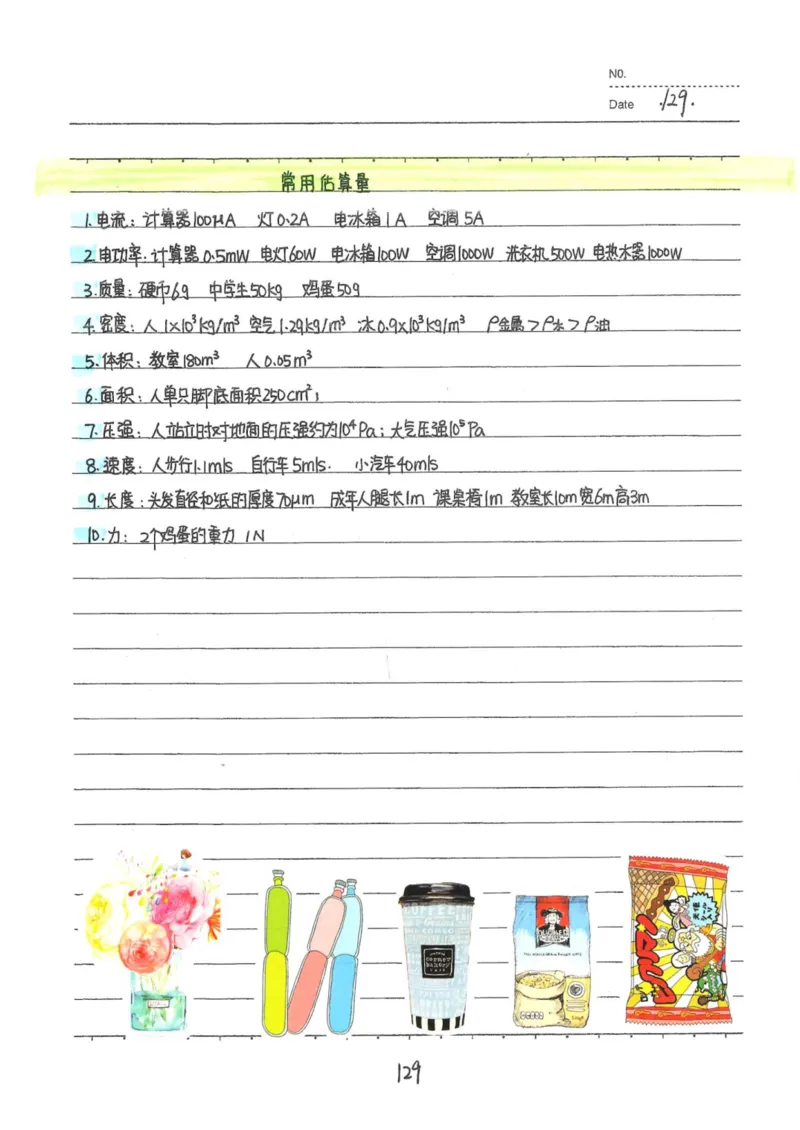 NO.
Date /29.
常用估算量
1.电流：计算器100μA 灯0.2A 电冰箱1A 空调5A
2.电功率：计算器0.5mW 电灯60W 电冰箱100W 空调1000W 洗衣机500W 电热水器1000W
3.质量：硬币6g 中学生50kg 鸡蛋50g
4.密度：人1×10³kg/m³ 空气1.29kg/m³ 冰0.9×10³kg/m³ ρ金属>ρ水>ρ油
5.体积：教室180m³ 人0.05m³
6.面积：人单只脚底面积250cm²；
7.压强：人站立时对地面的压强约为10⁴Pa；大气压强10⁵Pa
8.速度：人步行1.1m/s 自行车5m/s. 小汽车40m/s
9.长度：头发直径和纸的厚度70μm 成年人腿长1m 课桌椅1m 教室长10m宽6m高3m
10.力：2个鸡蛋的重力 1N
129